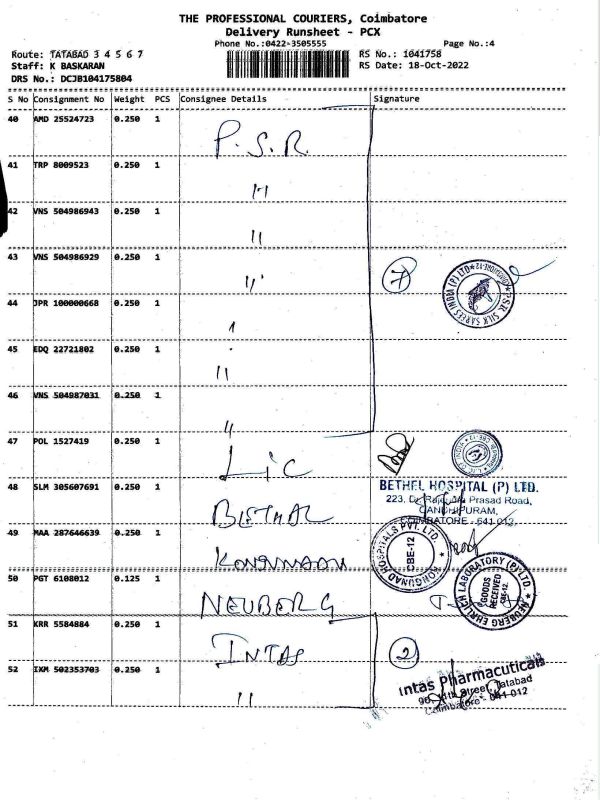 THE PROFESSIONAL COURIERS, Coimbatore
Delivery Runsheet - PCX
Phone No.:0422-3505555
Page No.:4
Route: TATABAD 3 4 5 6 7
RS No.: 1041758
Staff: K BASKARAN
RS Date: 18-Oct-2022
DRS No.: DCJB104175804
S No Consignment No Weight PCS Consignee Details Signature
40 AMD 25524723 0.250 1 P.S.R.
41 TRP 8009523 0.250 1 "
42 VNS 504986943 0.250 1 "
43 VNS 504986929 0.250 1 " 7
P.S.R. SILK SAREES INDIA (P) LTD COIMBATORE-12
44 JPR 100000668 0.250 1 "
45 EDQ 22721802 0.250 1 "
46 VNS 504987031 0.250 1 "
47 POL 1527419 0.250 1 LIC
48 SLM 305607691 0.250 1 BETHAL
BETHEL HOSPITAL (P) LTD.
223, Dr. Rajendra Prasad Road,
GANDHIPURAM,
COIMBATORE - 641 012.
49 MAA 287646639 0.250 1 KONGUNADU
KONGUNAD HOSPITALS PVT. LTD. CBE-12
50 PGT 6108012 0.125 1 NEUBERG
NEUBERG EHRLICH LABORATORY (P) LTD.
GOODS RECEIVED CBE-12.
51 KRR 5584884 0.250 1 INTAS 2
52 IXM 502353703 0.250 1 "
Intas Pharmaceuticals
90, 11th Street, Tatabad
Coimbatore - 641 012